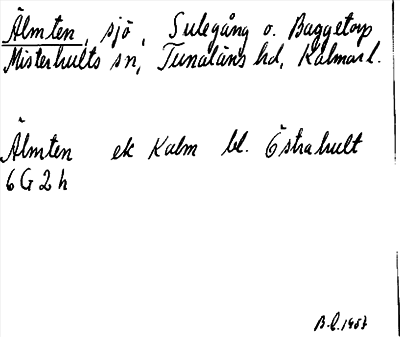 Älmten, sjö, Sulegång o. Baggetorp
Misterhults sn, Tunaläns hd, Kalmar l.
Älmten ek Kalm bl. Östrahult
6G2h
B.L. 1957